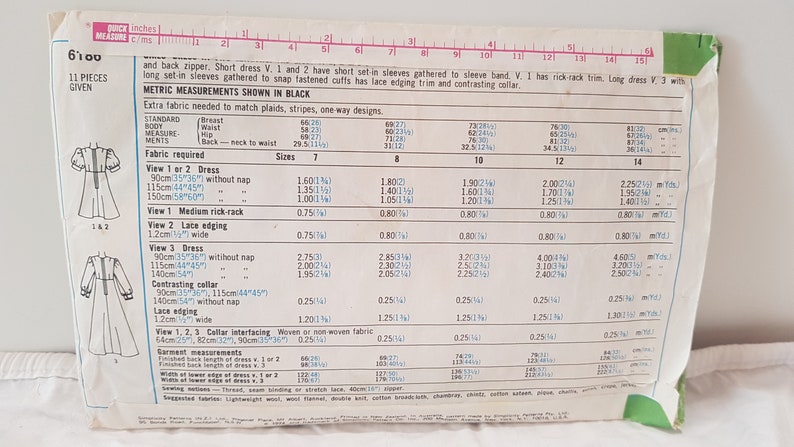 QUICK MEASURE inches 1 2 3 4 5 6
c/ms 1 2 3 4 5 6 7 8 9 10 11 12 13 14 15
6186
11 PIECES GIVEN
and back zipper. Short dress V. 1 and 2 have short set-in sleeves gathered to sleeve band. V. 1 has rick-rack trim. Long dress V. 3 with
long set-in sleeves gathered to snap fastened cuffs has lace edging trim and contrasting collar.
METRIC MEASUREMENTS SHOWN IN BLACK
Extra fabric needed to match plaids, stripes, one-way designs.
STANDARD BODY MEASURE- MENTS
Breast 66(26) 69(27) 73(28½) 76(30) 81(32) cm(ins.)
Waist 58(23) 60(23½) 62(24½) 65(25½) 67(26½) " "
Hip 69(27) 71(28) 76(30) 81(32) 87(34) " "
Back — neck to waist 29.5(11½) 31(12) 32.5(12¾) 34.5(13½) 36(14¼) " "
Fabric required Sizes 7 8 10 12 14
View 1 or 2 Dress
90cm(35"36") without nap 1.60(1¾) 1.80(2) 1.90(2⅛) 2.00(2¼) 2.25(2½) m(Yds.)
115cm(44"45") " " 1.35(1½) 1.40(1½) 1.60(1¾) 1.70(1⅞) 1.95(2⅛) " "
150cm(58"60") " " 1.00(1⅛) 1.05(1⅛) 1.20(1⅜) 1.25(1⅜) 1.40(1½) " "
View 1 Medium rick-rack 0.75(⅞) 0.80(⅞) 0.80(⅞) 0.80(⅞) 0.80(⅞) m(Yd.)
View 2 Lace edging
1.2cm(½") wide 0.75(⅞) 0.80(⅞) 0.80(⅞) 0.80(⅞) 0.80(⅞) m(Yd.)
View 3 Dress
90cm(35"36") without nap 2.75(3) 2.85(3⅛) 3.20(3½) 4.00(4⅜) 4.60(5) m(Yds.)
115cm(44"45") " " 2.00(2¼) 2.30(2½) 2.50(2¾) 3.10(3⅜) 3.20(3½) " "
140cm(54") " " 1.95(2⅛) 2.05(2¼) 2.25(2½) 2.40(2⅝) 2.50(2¾) " "
Contrasting collar
90cm(35"36"), 115cm(44"45")
140cm(54") without nap 0.25(¼) 0.25(¼) 0.25(¼) 0.25(¼) 0.25(⅜) m(Yd.)
Lace edging
1.2cm(½") wide 1.20(1⅜) 1.25(1⅜) 1.25(1⅜) 1.25(1⅜) 1.30(1½) m(Yds.)
View 1, 2, 3 Collar interfacing Woven or non-woven fabric
64cm(25"), 82cm(32"), 90cm(35"36") 0.25(¼) 0.25(¼) 0.25(¼) 0.25(¼) 0.25(⅜) m(Yd.)
Garment measurements
Finished back length of dress v. 1 or 2 66(26) 69(27) 74(29) 79(31) 84(33) cm(ins.)
Finished back length of dress v. 3 98(38½) 103(40½) 113(44½) 123(48½) 128(50½) " "
Width of lower edge of dress v. 1 or 2 122(48) 127(50) 136(53½) 145(57) 155(61) " "
Width of lower edge of dress v. 3 170(67) 179(70½) 196(77) 212(83½)
Sewing notions — Thread, seam binding or stretch lace, 40cm(16") zipper.
Suggested fabrics: Lightweight wool, wool flannel, double knit, cotton broadcloth, chambray, chintz, cotton sateen, pique, challis,
1 & 2
3